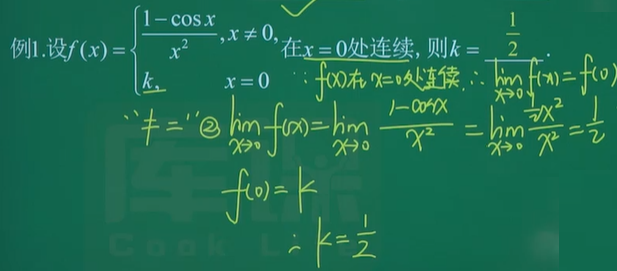 例1.设f(x)={ (1-cosx)/x², x≠0, k, x=0 在x=0处连续, 则k= 1/2 .
∵ f(x)在x=0处连续 ∴ lim x→0 f(x)=f(0)
"≠ =" ② lim x→0 f(x)=lim x→0 (1-cosx)/x² = lim x→0 (½x²)/x² = 1/2
f(0)=k
∴ k=1/2
库课
Cook L